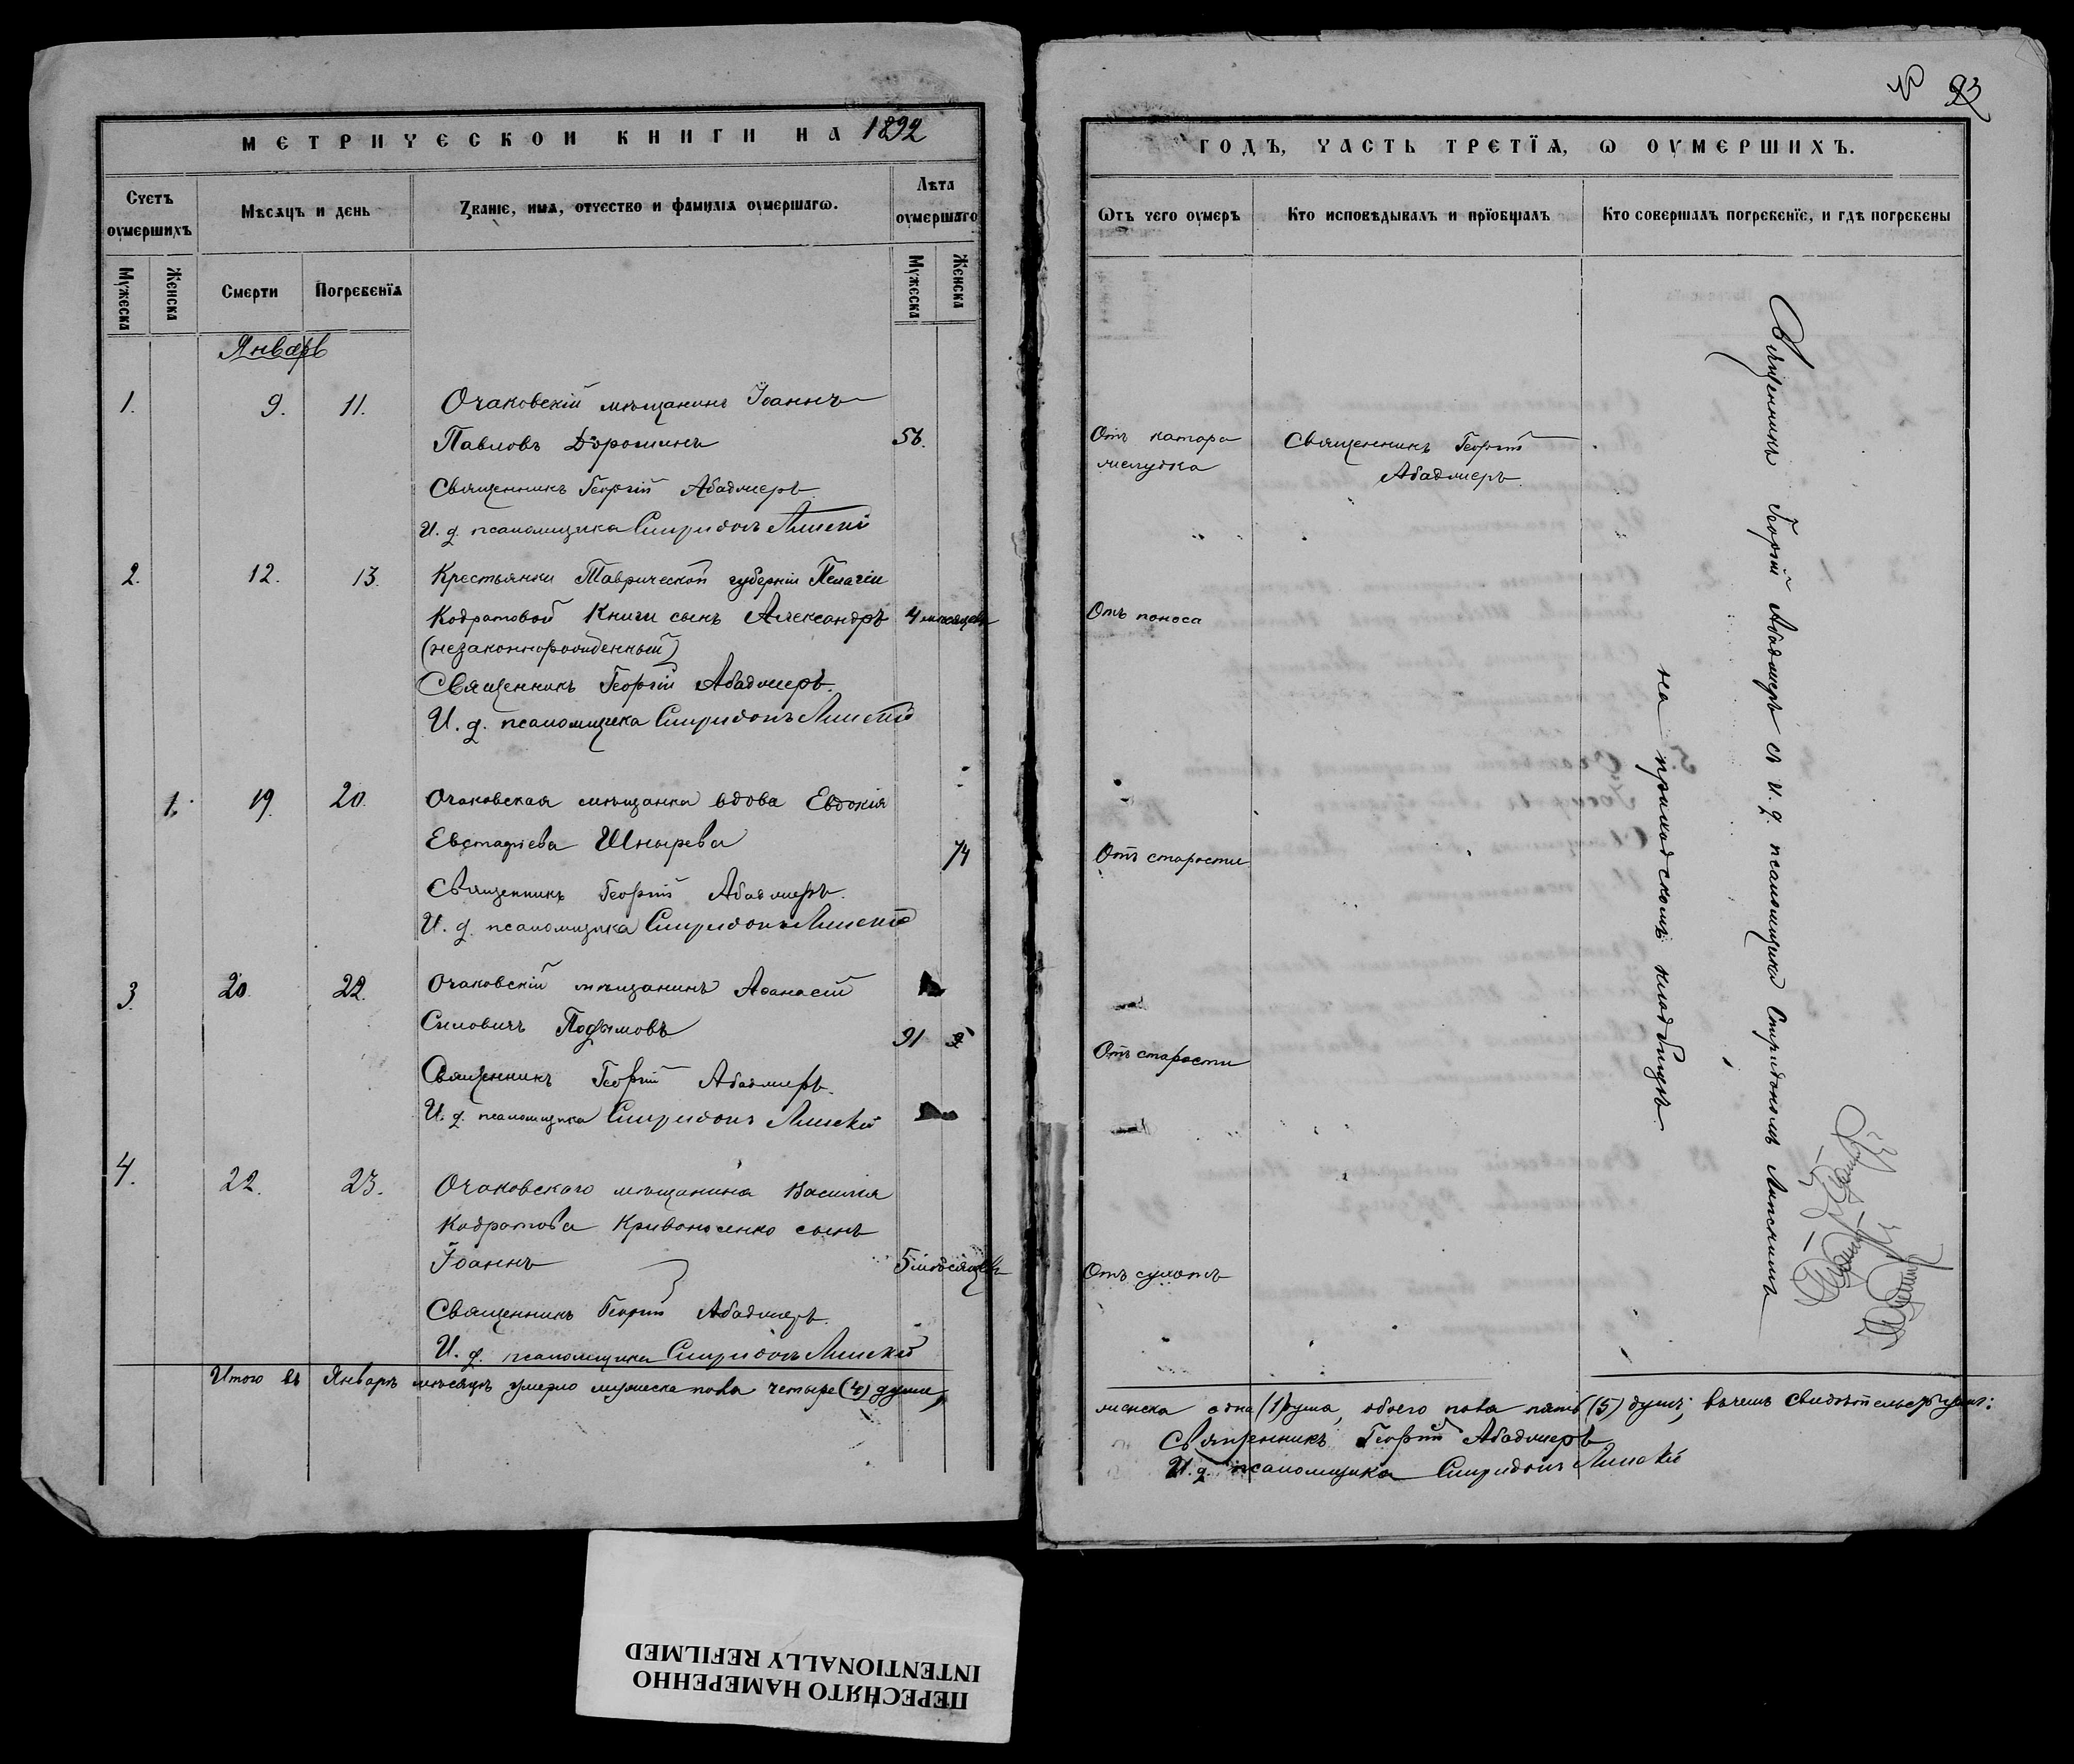 МЕТРИЧЕСКОЙ КНИГИ НА 1892
Счетъ оумершихъ
Мѣсяцъ и день
Званіе, имя, отчество и фамилія оумершагѡ.
Лѣта оумершаго
Мужеска
Женска
Смерти
Погребенїя
Мужеска
Женска
Январь
1. 9. 11. Очаковскій мѣщанинъ Іоаннъ
Павловъ Дорошинъ 56.
Священникъ Георгій Абаджеръ
И. д. псаломщика Спиридонъ Липскій
2. 12. 13. Крестьянки Таврической губерніи Пелагіи
Кодратовой Книги сынъ Александръ 4 мѣсяцевъ
(незаконнорожденный)
Священникъ Георгій Абаджеръ.
И. д. псаломщика Спиридонъ Липскій
1. 19. 20. Очаковская мѣщанка вдова Евдокія
Евстафіева Шнырева 74
Священникъ Георгій Абаджеръ.
И. д. псаломщика Спиридонъ Липскій
3. 20. 22. Очаковскій мѣщанинъ Аѳанасій
Силовичъ Подымовъ 91
Священникъ Георгій Абаджеръ.
И. д. псаломщика Спиридонъ Липскій
4. 22. 23. Очаковскаго мѣщанина Василія
Кодратова Кривоносенко сынъ
Іоаннъ 5 мѣсяцевъ
Священникъ Георгій Абаджеръ.
И. д. псаломщика Спиридонъ Липскій
Итого въ Январѣ мѣсяцѣ умерло мужеска пола четыре (4) души,
93
ГОДЪ, ЧАСТЬ ТРЕТЇЯ, Ѡ ОУМЕРШИХЪ.
Ѿтъ чего оумеръ
Кто исповѣдывалъ и прїобщалъ
Кто совершалъ погребенїе, и гдѣ погребены
Отъ катара желудка
Священникъ Георгій
Абаджеръ
Отъ поноса
Отъ старости
Отъ старости
Отъ сухотъ
Священникъ Георгій Абаджеръ съ И. д. псаломщика Спиридономъ Липскимъ
на приходскомъ кладбищѣ.
женска одна (1) душа, обоего пола пять (5) душъ; въ чемъ свидѣтельствуютъ:
Священникъ Георгій Абаджеръ
И. д. псаломщика Спиридонъ Липскій
ПЕРЕСНЯТО НАМЕРЕННО
INTENTIONALLY REFILMED